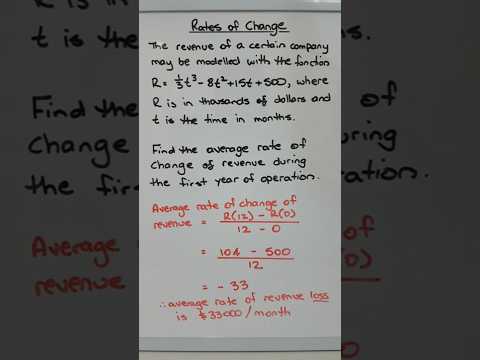 Rates of Change
The revenue of a certain company
may be modelled with the function
R = 1/3t³ - 8t² + 15t + 500, where
R is in thousands of dollars and
t is the time in months.
Find the average rate of
change of revenue during
the first year of operation.
Average rate of change of
revenue = R(12) - R(0)
12 - 0
= 104 - 500
12
= - 33
∴ average rate of revenue loss
is $33000/month